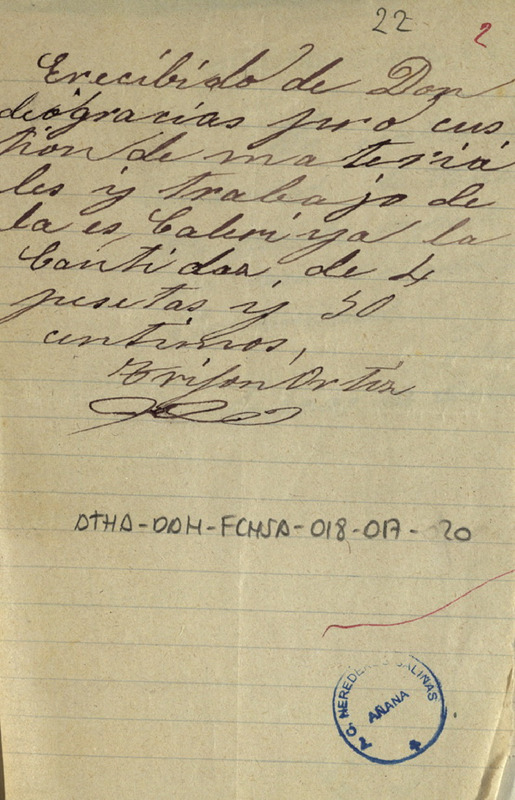 22
2
Erecibido de Don
deógracias pro cus
tion de materia
les y trabajo de
la es, Caleri ya la
Cantidaz de 4
pesetas y 50
centimos,
Trifon Ortiz
ATHA-DAH-FCHSA-018-017-020
A.C. HEREDEROS SALINAS
AÑANA